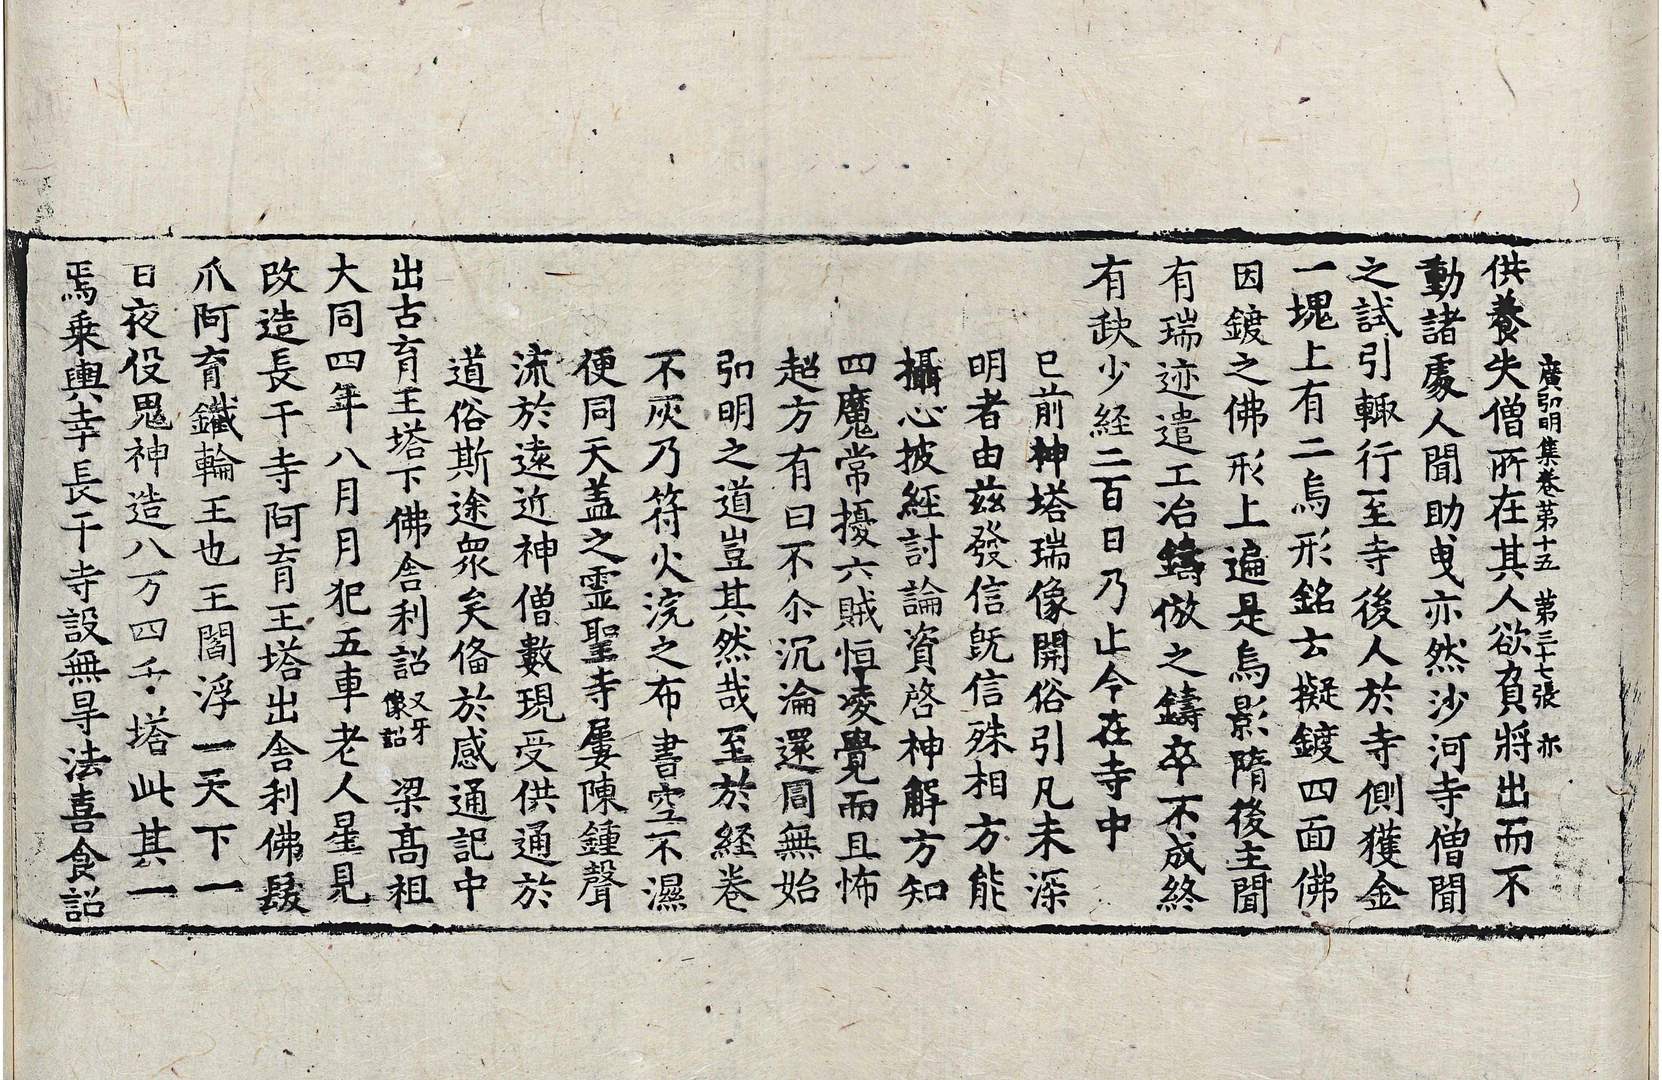 廣弘明集卷第十五 第三十七張 亦
供養失僧所在其人欲負將出而不
動諸處人聞助曳亦然沙河寺僧聞
之試引輙行至寺後人於寺側獲金
一塊上有二烏形銘云擬鍍四面佛
因鍍之佛形上遍是烏影隋後主聞
有瑞迹遣工冶鑄倣之鑄卒不成終
有缺少経二百日乃止今在寺中
已前神塔瑞像開俗引凡未深
明者由茲發信旣信殊相方能
攝心披經討論資啓神解方知
四魔常擾六賊恒凌覺而且怖
超方有曰不尒沉淪還同無始
弘明之道豈其然哉至於経卷
不灰乃符火浣之布書空不濕
便同天盖之霊聖寺屢陳鍾聲
流於遠近神僧數現受供通於
道俗斯途衆矣俻於感通記中
出古育王塔下佛舍利詔 又牙像詔 梁髙祖
大同四年八月月犯五車老人星見
改造長干寺阿育王塔出舍利佛髮
爪阿育鐵輪王也王閻浮一天下一
日夜役鬼神造八万四千塔此其一
焉乗輿幸長干寺設無㝵法喜食詔